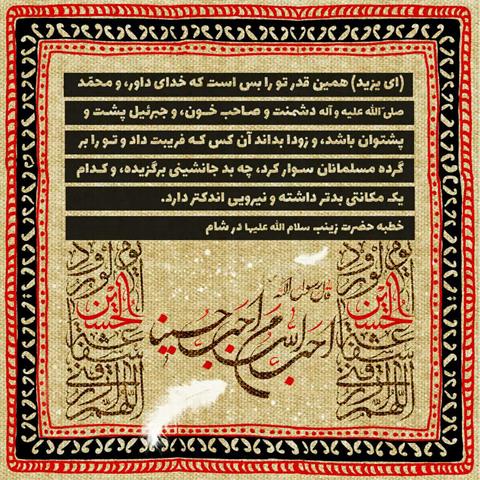 (ای یزید) همین قدر تو را بس است که خدای داور، و محمّد
صلی الله علیه و آله دشمنت و صاحب خون، و جبرئیل پشت و
پشتوان باشد، و زودا بداند آن کس که فریبت داد و تو را بر
گرده مسلمانان سوار کرد، چه بد جانشینی برگزیده، و کدام
یک مکانتی بدتر داشته و نیرویی اندکتر دارد.
خطبه حضرت زینب سلام الله علیها در شام
قال رسول الله
احب الله من احب حسینا
اللهم ارزقنی
شفاعة
الحسین
یوم الورود
اللهم ارزقنی
شفاعة
الحسین
یوم الورود